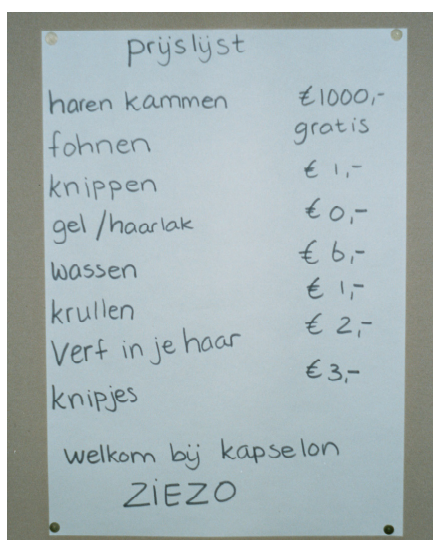 prijslijst
haren kammen €1000,-
fohnen gratis
knippen € 1,-
gel /haarlak € 0,-
wassen € 6,-
krullen € 1,-
Verf in je haar € 2,-
knipjes € 3,-
welkom bij kapselon
ZiEZO